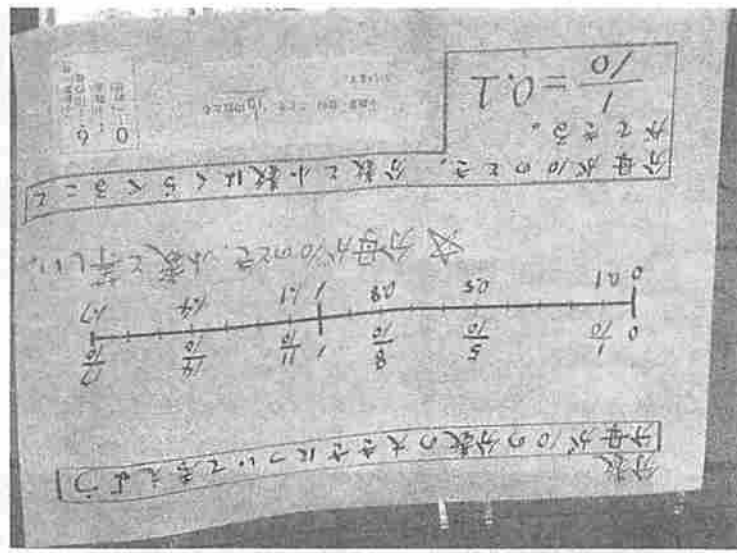 分数
分母が10の分数の大きさについて考えよう
0 1/10 5/10 8/10 1 11/10 14/10 17/10
0 0.1 0.5 0.8 1 1.1 1.4 1.7
☆分母が10のとき、小数と等しい。
分母が10のとき、分数と小数はくらべること
ができる。
1/10 = 0.1